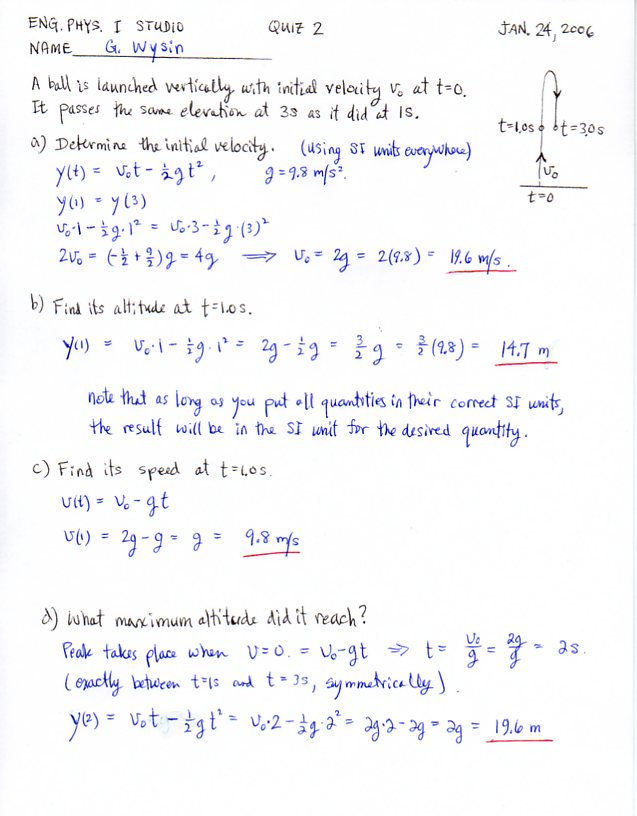 ENG. PHYS. I STUDIO QUIZ 2 JAN. 24, 2006
NAME G. Wysin
A ball is launched vertically with initial velocity v₀ at t=0.
It passes the same elevation at 3s as it did at 1s.
t=1.0s t=3.0s
v₀
t=0
a) Determine the initial velocity. (using SI units everywhere)
y(t) = v₀t - ½gt², g=9.8 m/s².
y(1) = y(3)
v₀·1 - ½g·1² = v₀·3 - ½g·(3)²
2v₀ = (-½ + 9/2)g = 4g ⟹ v₀ = 2g = 2(9.8) = 19.6 m/s.
b) Find its altitude at t=1.0s.
y(1) = v₀·1 - ½g·1² = 2g - ½g = 3/2 g = 3/2 (9.8) = 14.7 m
note that as long as you put all quantities in their correct SI units,
the result will be in the SI unit for the desired quantity.
c) Find its speed at t=1.0s.
v(t) = v₀ - gt
v(1) = 2g - g = g = 9.8 m/s
d) What maximum altitude did it reach?
Peak takes place when v=0. = v₀-gt ⇒ t = v₀/g = 2g/g = 2s.
(exactly between t=1s and t=3s, symmetrically).
y(2) = v₀t - ½gt² = v₀·2 - ½g·2² = 2g·2 - 2g = 2g = 19.6 m